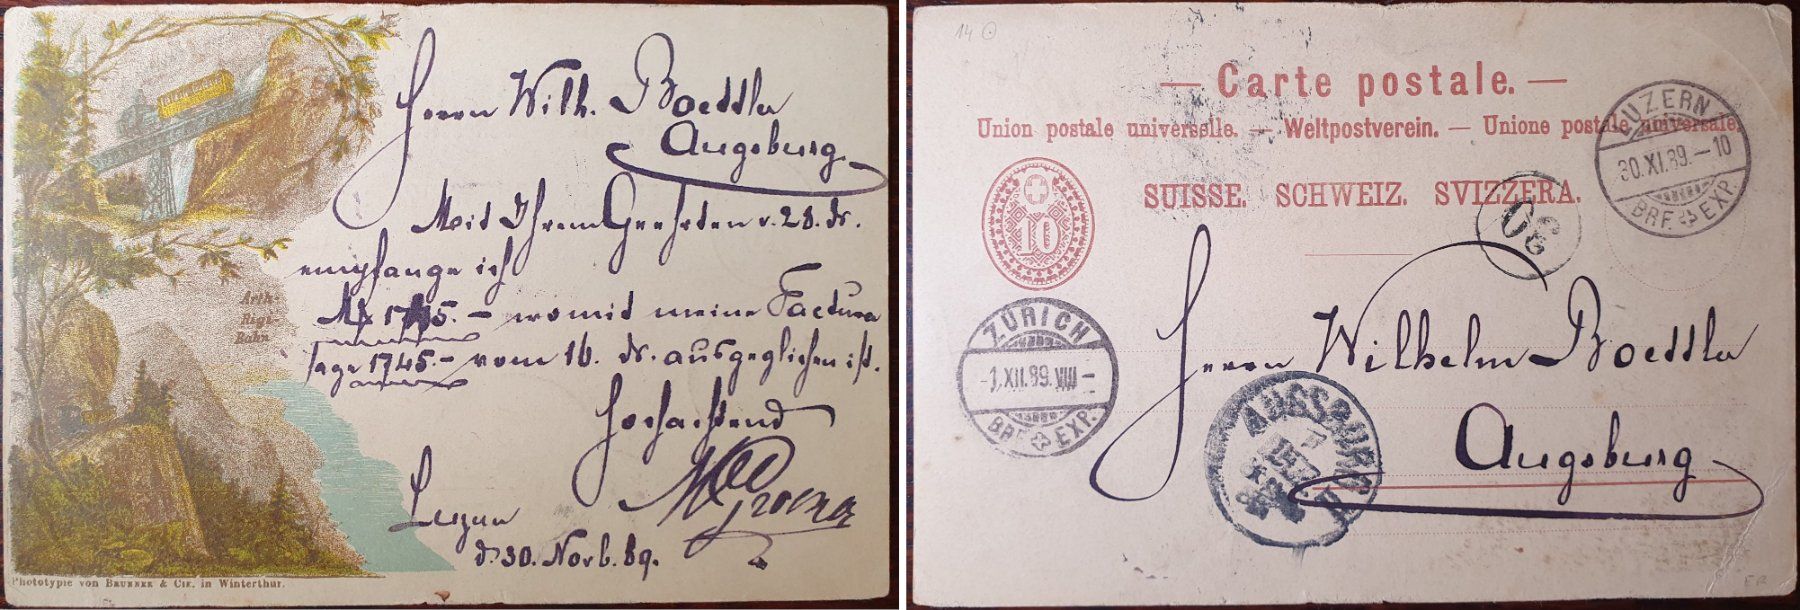 Herrn Wilh. Boeddler
Augsburg
Mit Ihrem Geehrten v. 28. ds.
empfange ich
M 1745.- womit meine Factura
sage 1745.- vom 16. ds. ausgeglichen ist.
Hochachtend
Luzern
d. 30. Novb. 89.
Arth-
Rigi-
Bahn
Phototypie von BRUNNER & CIE. in Winterthur.
14
— Carte postale. —
Union postale universelle. — Weltpostverein. — Unione postale universale.
SUISSE. SCHWEIZ. SVIZZERA.
10
LUZERN
30.XI.89.-10
BRF. EXP.
ZÜRICH
-1.XII.89.VIII-
BRF. EXP.
Herrn Wilhelm Boeddler
AUGSBURG
Augsburg